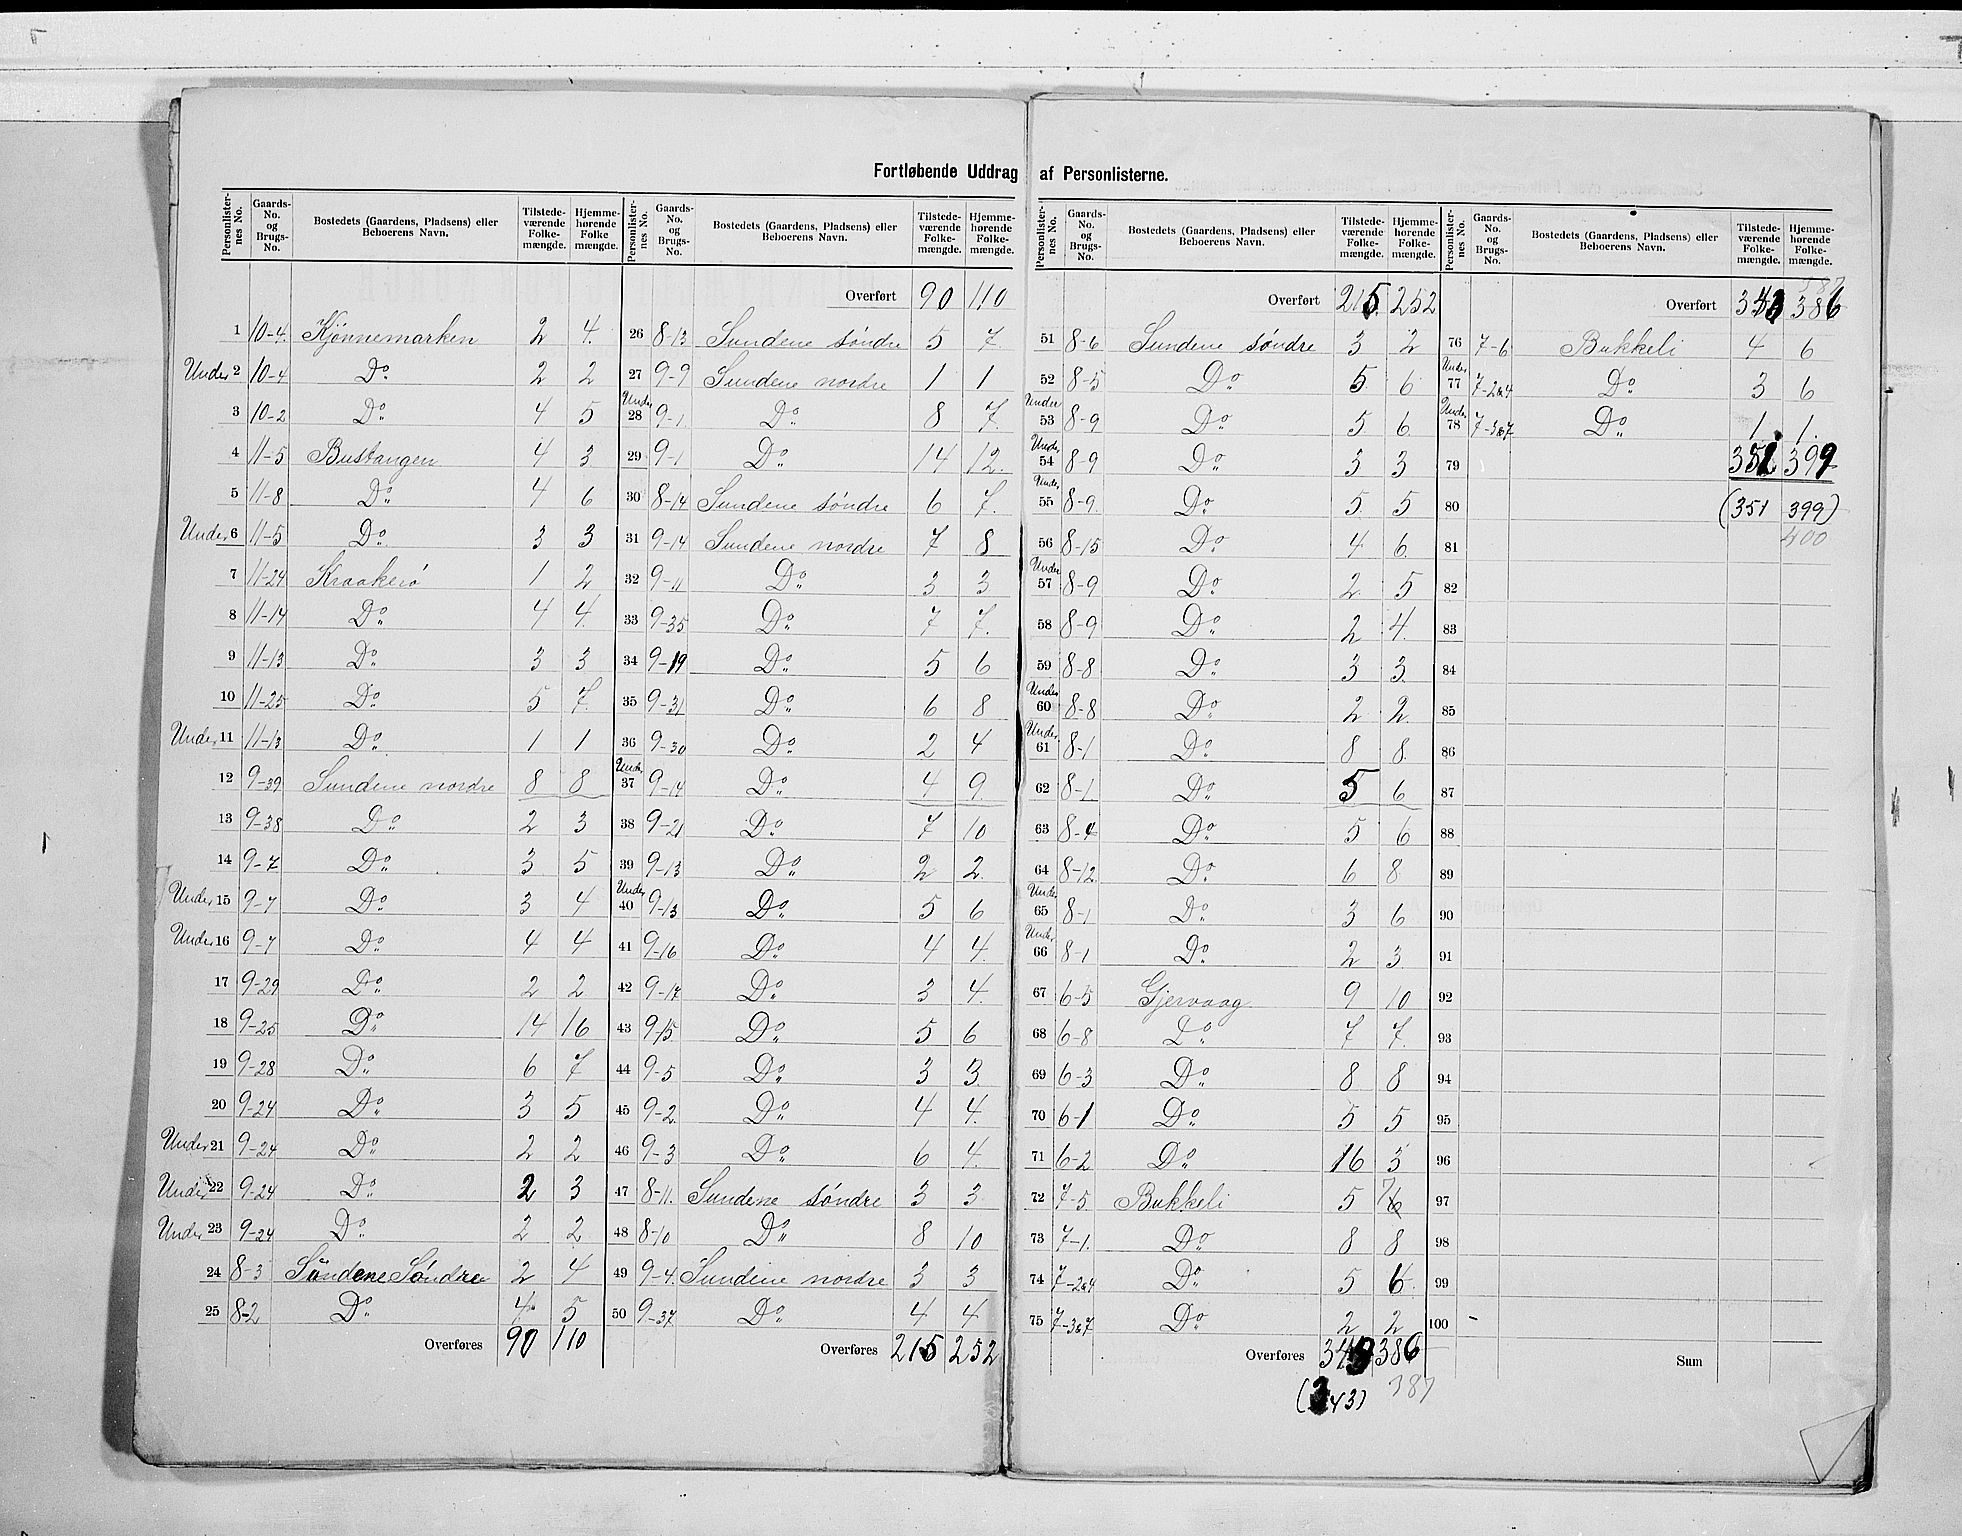 Fortløbende Uddrag af Personlisterne.
Personlister-nes No. | Gaards-No. og Brugs-No. | Bostedets (Gaardens, Pladsens) eller Beboerens Navn. | Tilstede-værende Folke-mængde. | Hjemme-hørende Folke mængde.
1 10-4. Kjønnemarken 2 4.
Under 2 10-4 Do 2 2
3 10-2 Do 4 5
4 11-5 Bustangen 4 3
5 11-8 Do 4 6
Under 6 11-5 Do 3 3
7 11-24 Kraakerö 1 2
8 11-14 Do 4 4.
9 11-13 Do 3 3
10 11-25 Do 5 7.
Under 11 11-13 Do 1 1
12 9-39 Sundene nordre 8 8
13 9-38 Do 2 3
14 9-7 Do 3 5
Under 15 9-7 Do 3 4
Under 16 9-7 Do 4 4
17 9-29 Do 2 2
18 9-25 Do 14 16
19 9-28 Do 6 7
20 9-24 Do 3 5
Under 21 9-24 Do 2 2
Under 22 9-24 Do 2 3
Under 23 9-24 Do 2 2
24 8-3 Søndre 2 4
25 8-2 Do 4 5
Overføres 90 110
Personlister-nes No. | Gaards-No. og Brugs-No. | Bostedets (Gaardens, Pladsens) eller Beboerens Navn. | Tilstede-værende Folke-mængde. | Hjemme-hørende Folke-mængde.
Overført 90 110
26 8-13 Sundene söndre 5 7.
27 9-9 Sundene nordre 1 1
Under 28 9-1 Do 8 7.
29 9-1 Do 14 12.
30 8-14 Sundene söndre 6 7.
31 9-14 Sundene nordre 7 8
32 9-11 Do 3 3
33 9-35 Do 7 7.
34 9-19 Do 5 6
35 9-31 Do 6 8
36 9-30 Do 2 4
Under 37 9-14 Do 4 9.
38 9-21 Do 7 10
39 9-13 Do 2 2.
Under 40 9-13 Do 5 6
41 9-16 Do 4 4.
42 9-17 Do 3 4.
43 9-15 Do 5 6
44 9-5 Do 3 3.
45 9-2 Do 4 4.
46 9-3 Do 6 4.
47 8-11. Sundene söndre 3 3
48 8-10 Do 8 10
49 9-4. Sundene nordre 3 3
50 9-37 Do 4 4
Overføres 215 252
Personlister-nes No. | Gaards-No. og Brugs-No. | Bostedets (Gaardens, Pladsens) eller Beboerens Navn. | Tilstede-værende Folke-mængde. | Hjemme-hørende Folke-mængde.
Overført 215 252
51 8-6 Sundene söndre 3 2
52 8-5 Do 5 6
Under 53 8-9 Do 5 6
Under 54 8-9 Do 3 3
Under 55 8-9. Do 5 5
56 8-15 Do 4 6.
Under 57 8-9 Do 2 5
58 8-9 Do 2 4.
59 8-8 Do 3 3.
Under 60 8-8 Do 2 2.
Under 61 8-1 Do 8 8.
62 8-1 Do 5 6
63 8-4 Do 5 6
64 8-12. Do 6 8
Under 65 8-1 Do 3 6
Under 66 8-1 Do 2 3
67 6-5 Gjervaag 9 10
68 6-8 Do 7 7.
69 6-3 Do 8 8
70 6-1 Do 5 5
71 6-2 Do 16 3
72 7-5 Bukkeli 5 7 6
73 7-1. Do 8 8
74 7-2&4 Do 5 6
75 7-3&7 Do 2 2
Overføres 343 386
(343) 387
Personlister-nes No. | Gaards-No. og Brugs-No. | Bostedets (Gaardens, Pladsens) eller Beboerens Navn. | Tilstede-værende Folke-mængde. | Hjemme-hørende Folke-mængde.
387
Overført 343 386
76 7-6 Bukkeli 4 6
Under 77 7-2&4 Do 3 6
Under 78 7-3&7 Do 1 1.
79 351 399
80 (351 399)
81 400
82
83
84
85
86
87
88
89
90
91
92
93
94
95
96
97
98
99
100
Sum